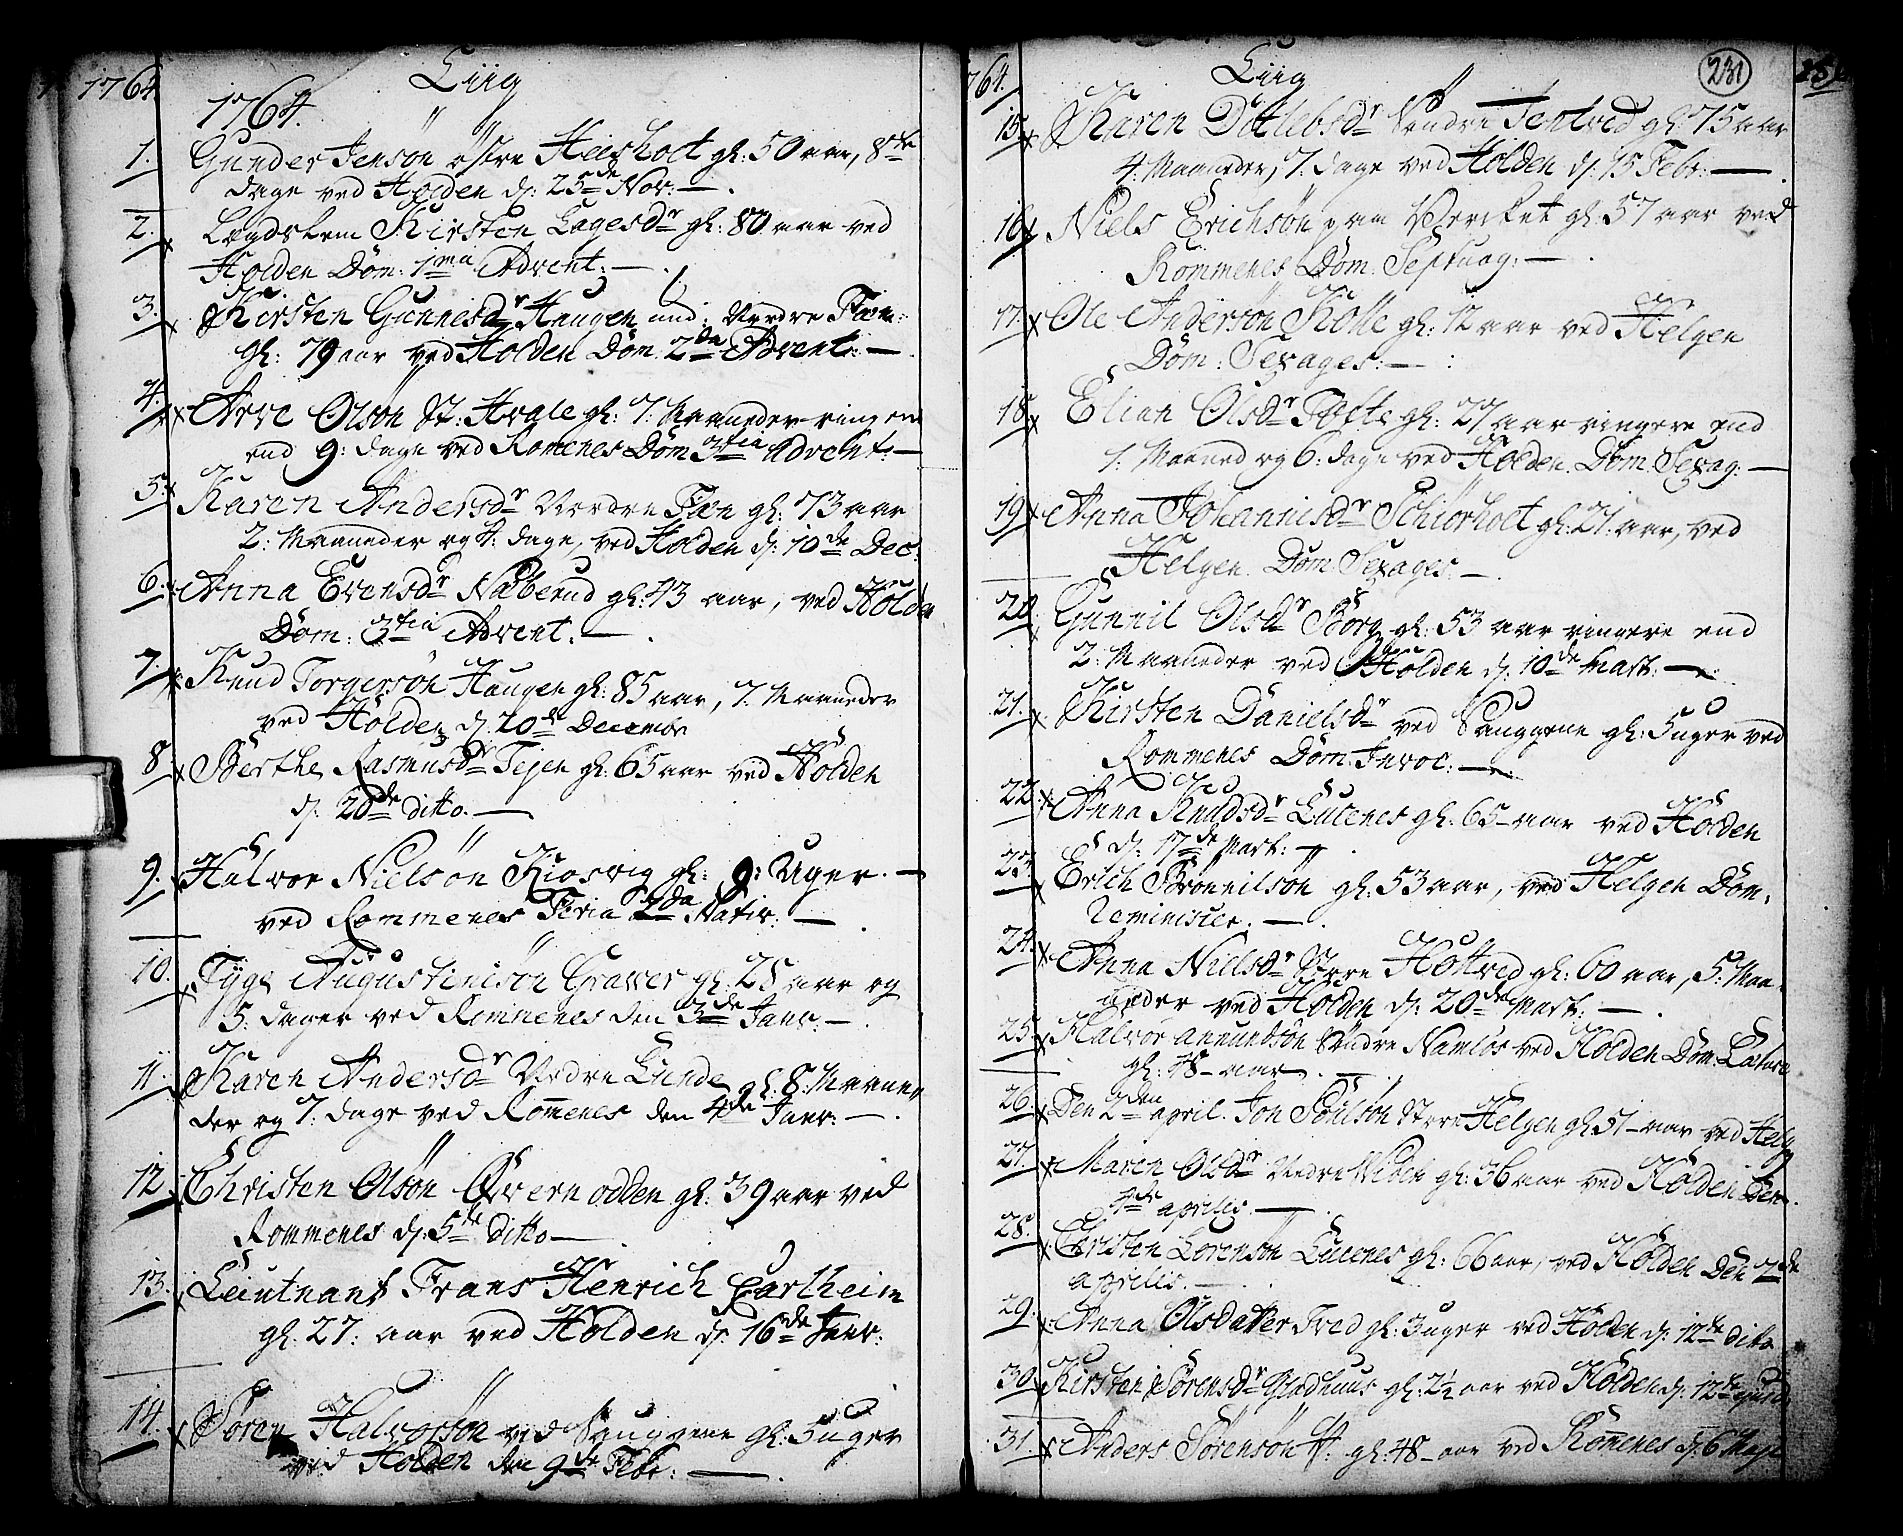 1764.
Liig
1764.
1. Gunder Jensøn østre Heisholt gl: 50 aar, 8te
dage ved Holden d: 25de Nov: —.
2. Legdslem Kirsten Lagesdr gl: 80 aar ved
Holden Dom: 1ma Advent: —.
3. Kirsten Gunnesdr Haugen und: Nordre Fæn:
gl: 79 aar ved Holden Dom 2da Advent: —
4. Arve Olsøn St: Hvale gl: 7: Maaneder ringere
end 9: dage ved Romenes Dom 3tia Advent: —
5. Karen Andersdr Nordre Fæn gl: 73 aar
2: Maaneder og 4: dage, ved Holden d: 10de Dec:
6. Anna Evensdr Næberud gl: 43 aar, ved Holden
Dom: 3tia Advent: —.
7. Knud Torgersøn Haugen gl: 85 aar, 7: Maaneder
ved Holden d: 20de Decembr
8. Berthe Rasmusdr Tejen gl: 65 aar ved Holden
d: 20de ditto. —
9. Halvor Nielsøn Kiosvig gl: 9: Uger. —
ved Rommenes Feria 2da Nativ: —.
10. Tyge Augustinisøn Graver gl: 28 aar og
5: dager ved Romnenes den 3de Janr: —.
11. Karen Andersdr Nordre Lunde gl: 8: Maane
der og 7: dage ved Romenes den 4de Janr: —.
12. Christen Olsøn Qvernodden gl: 39 aar ved
Rommenes d: 5te ditto —
13. Leiutnant Frans Henrich Cartheim
gl: 27: aar ved Holden d: 16de Janr:
14. Søren Halvorsøn ved Bruggene gl: 5 uger
ved Holden den 9de Febr: —.
764.
Liig
231
15. Karen Ditlebsdr Søndre Tentved gl: 75 aar
4: Maaneder, 7: dage ved Holden d: 15 Febr: —.
16. Niels Erichsøn paa Vercket gl: 57 aar ved
Rommenes Dom: Septuag: —.
17. Ole Andersøn Kolle gl: 12 aar ved Helgen
Dom: Sexages: —:
18. Elian Olsdr Tofte gl: 27 aar ringere end
1: Maaned og 6: dage ved Holden. Dom: Sexag: —
19. Anna Johannisdr Schiorholt gl: 21: aar, ved
Helgen Dom: Sexages: —.
20. Gunnil Olsdr Borg gl: 53 aar ringere end
2: Maaneder ved Holden d: 10de Mart: —.
21. Kirsten Danielsdr ved Bruggene gl: 5 uger ved
Rommenes Dom: Invoc: —.
22. Anna Knudsdr Lutenes gl: 65 aar ved Holden
d: 17de Mart: —.
23. Erich Brønnilsøn gl: 53 aar, ved Helgen Dom.
Reminiscer. —.
24. Anna Nielsdr Holtved gl: 60 aar, 5: Maa-
neder ved Holden d: 20de Mart: —.
25. Halvor Anmundsøn Søndre Namløs ved Holden Dom: Lætare
gl: 48 aar. —.
26. Den 2den april. Jon Povelsøn Store Helgen gl: 51 aar ved Helg
27. Maren Olsdr Nedre Wiben gl: 36 aar ved Holden Den.
4de aprilis. —.
28. Christen Lorensøn Lutenes gl: 66 aar, ved Holden Den 7de
aprilis. —.
29. Anna Olsdatter Tved gl: 3 uger ved Holden d: 12te dito
30. Kirsten Sørensdr Gladhuus gl: 2½ aar ved Holden d: 12te ejusd:
31. Anders Sørensøn gl: 48 aar ved Romenes d: 6 Maji